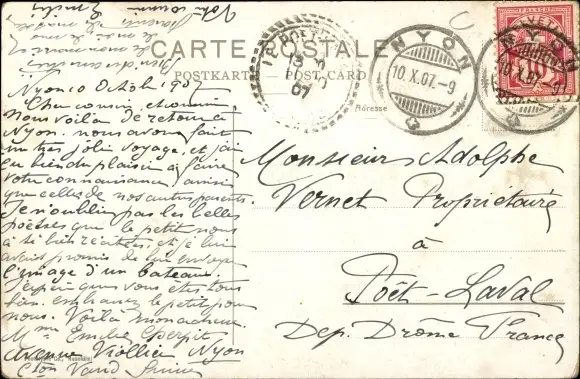 CARTE POSTALE
POSTKARTE — POST CARD
Adresse
NYON
10.X.07.-9
HELVETIA
FRANCO
NYON
10.X.07.
Nyon 10 Octobre 1907
Cher cousin et cousine
Nous voilà de retour à
Nyon. nous avons fait
un très joli voyage, et j'ai
eu bien du plaisir à faire
votre connaissance, ainsi
que celles de nos autres parents.
Je n'oublie pas les belles
poésies que le petit nous
a si bien récitées, et je lui
avais promis de lui envoyer
l'image d'un bateau.
J'espère que vous êtes tous
bien. embrassez le petit pour
nous. Voilà mon adresse
Mme Emilie
Avenue Viollier Nyon
Cton Vaud Suisse
Monsieur Adolphe
Vernet Propriétaire
à
Poët-Laval
Dep. Drôme France